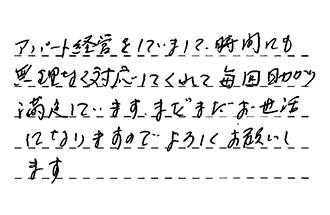 アパート経営をしていまして、時間にも
無理なく対応してくれて毎回助かり
満足しています。まだまだお世話
になりますのでよろしくお願いし
ます